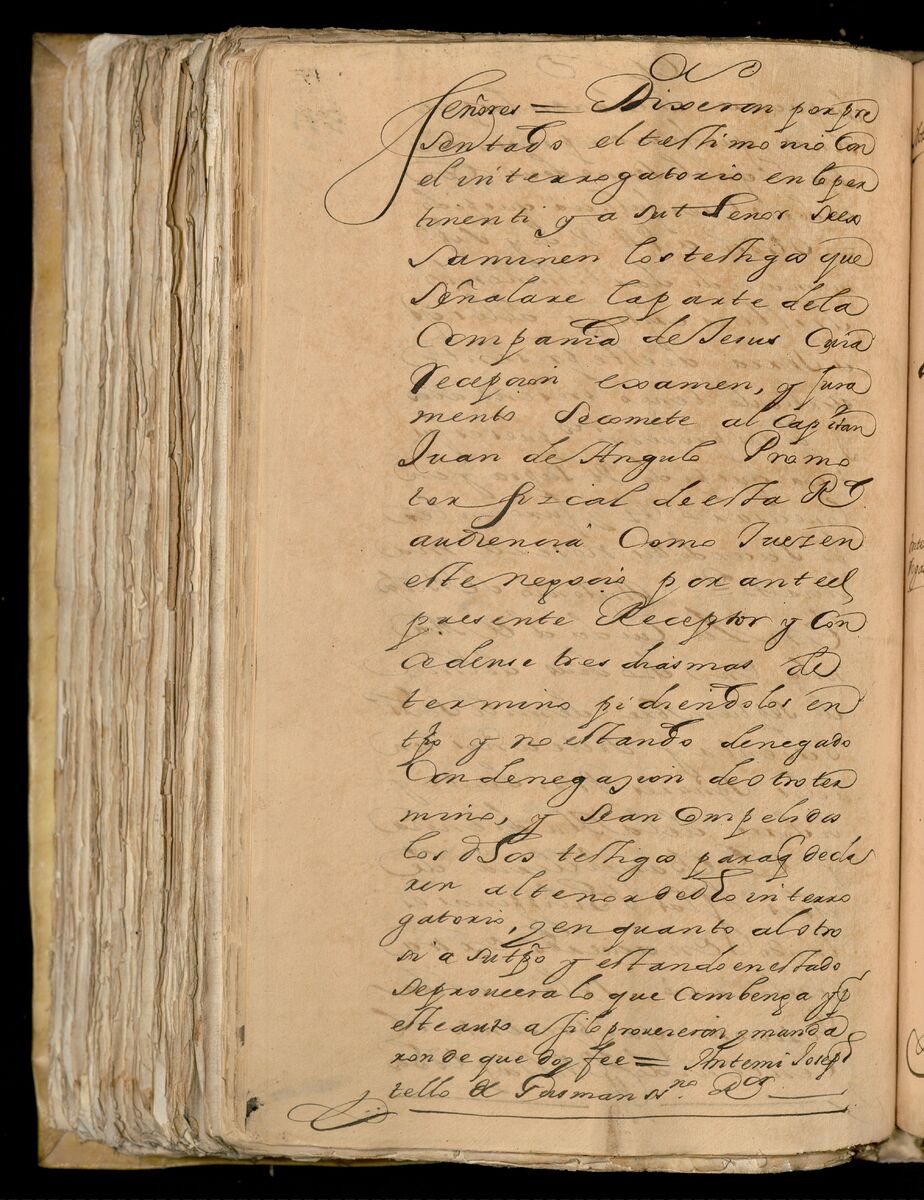 Señores = Dixeron por pre
sentado el testimonio con
el interrogatorio en lo per
tinenti y a su t Senor seex
saminen los testigos que
Señalare la parte de la
Compania de Jesus Cuia
recepcion examen, y jura
mento se comete al Capitan
Juan de Angulo Promo
tor fizcal de esta Rl
audiencia Como Juez en
este negocio por ante el
presente Receptor y con
cedense tres dias mas de
termino pidiendolos en
tpo y no estando denegado
Con denegasion de otro ter
mino, y sean compelidos
los dhos testigos para q decla
ren al tenor de dho interro
gatorio, y en quanto al otro
si a su tpo y estando en estado
se proveera lo que combenga y p
este auto assi lo proveieron y manda
ron de que doy fee = Ante mi Joseph
tello de Gusman ss.no Ror